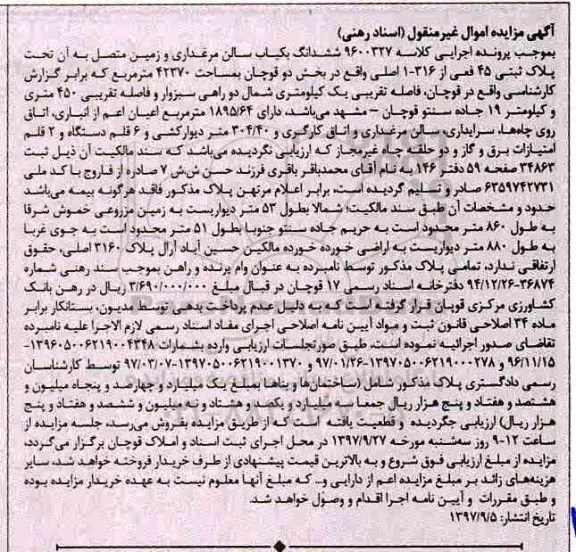 آگهی مزایده اموال غیرمنقول (اسناد رهنی)
بموجب پرونده اجرایی کلاسه ۹۶۰۰۳۲۷ ششدانگ یکباب سالن مرغداری و زمین متصل به آن تحت
پلاک ثبتی ۴۵ فعی از ۳۱۶-۱ اصلی واقع در بخش دو قوچان بمساحت ۴۲۳۷۰ مترمربع که برابر گزارش
کارشناسی واقع در قوچان، فاصله تقریبی یک کیلومتری شمال دو راهی سبزوار و فاصله تقریبی ۴۵۰ متری
و کیلومتر ۱۹ جاده سنتو قوچان – مشهد می‌باشد، دارای ۱۸۹۵/۶۴ مترمربع اعیان اعم از انباری، اتاق
روی چاه‌ها، سرایداری، سالن مرغداری و اتاق کارگری و ۳۰۴/۴۰ متر دیوارکشی و ۶ قلم دستگاه و ۲ قلم
امتیازات برق و گاز و دو حلقه چاه غیرمجاز که ارزیابی نگردیده می‌باشد که سند مالکیت آن ذیل ثبت
۳۴۸۶۳ صفحه ۵۹ دفتر ۱۴۶ به نام آقای محمدباقر باقری فرزند حسن ش‌ش ۷ صادره از فاروج با کد ملی
۶۳۵۹۷۴۲۷۳۱ صادر و تسلیم گردیده است، برابر اعلام مرتهن پلاک مذکور فاقد هرگونه بیمه می‌باشد
حدود و مشخصات آن طبق سند مالکیت؛ شمالا بطول ۵۳ متر دیواریست به زمین مزروعی خموش شرقا
به طول ۸۶۰ متر محدود است به حریم جاده سنتو جنوبا بطول ۵۱ متر محدود است به جوی غربا
به طول ۸۸۰ متر دیواریست به اراضی خورده خورده مالکین حسین آباد آرال پلاک ۳۱۶۰ اصلی، حقوق
ارتفاقی ندارد، تمامی پلاک مذکور توسط نامبرده به عنوان وام برنده و راهن بموجب سند رهنی شماره
۳۶۸۷۴-۹۴/۱۲/۲۶ دفترخانه اسناد رسمی ۱۷ قوچان در قبال مبلغ ۳/۶۹۰/۰۰۰/۰۰۰ ریال در رهن بانک
کشاورزی مرکزی قوچان قرار گرفته است که به دلیل عدم پرداخت بدهی توسط مدیون، بستانکار برابر
ماده ۳۴ اصلاحی قانون ثبت و مواد آیین نامه اصلاحی اجرای مفاد اسناد رسمی لازم الاجرا علیه نامبرده
تقاضای صدور اجرائیه نموده است، طبق صورتجلسات ارزیابی وارده بشمارات ۱۳۹۶۰۵۰۰۶۲۱۹۰۰۴۳۴۸-
۹۶/۱۱/۱۵ و ۱۳۹۷۰۵۰۰۶۲۱۹۰۰۰۲۷۸-۹۷/۰۱/۲۶ و ۱۳۹۷۰۵۰۰۶۲۱۹۰۰۱۳۷۰-۹۷/۰۳/۰۷ توسط کارشناسان
رسمی دادگستری پلاک مذکور شامل (ساختمان‌ها و بناها بمبلغ یک میلیارد و چهارصد و پنجاه میلیون و
هشتصد و هفتاد و پنج هزار ریال جمعا سه میلیارد و یکصد و هشتاد و نه میلیون و ششصد و هفتاد و پنج
هزار ریال) ارزیابی جگردیده و قطعیت یافته است که از طریق مزایده بفروش می‌رسد، جلسه مزایده از
ساعت ۱۲-۹ روز سه‌شنبه مورخه ۱۳۹۷/۹/۲۷ در محل اجرای ثبت اسناد و املاک قوچان برگزار می‌گردد،
مزایده از مبلغ ارزیابی فوق شروع و به بالاترین قیمت پیشنهادی از طرف خریدار فروخته خواهد شد، سایر
هزینه‌های زائد بر مبلغ مزایده اعم از دارایی و.. که مبلغ آنها معلوم نیست به عهده خریدار مزایده بوده
و طبق مقررات و آیین نامه اجرا اقدام و وصول خواهد شد.
تاریخ انتشار: ۱۳۹۷/۹/۵